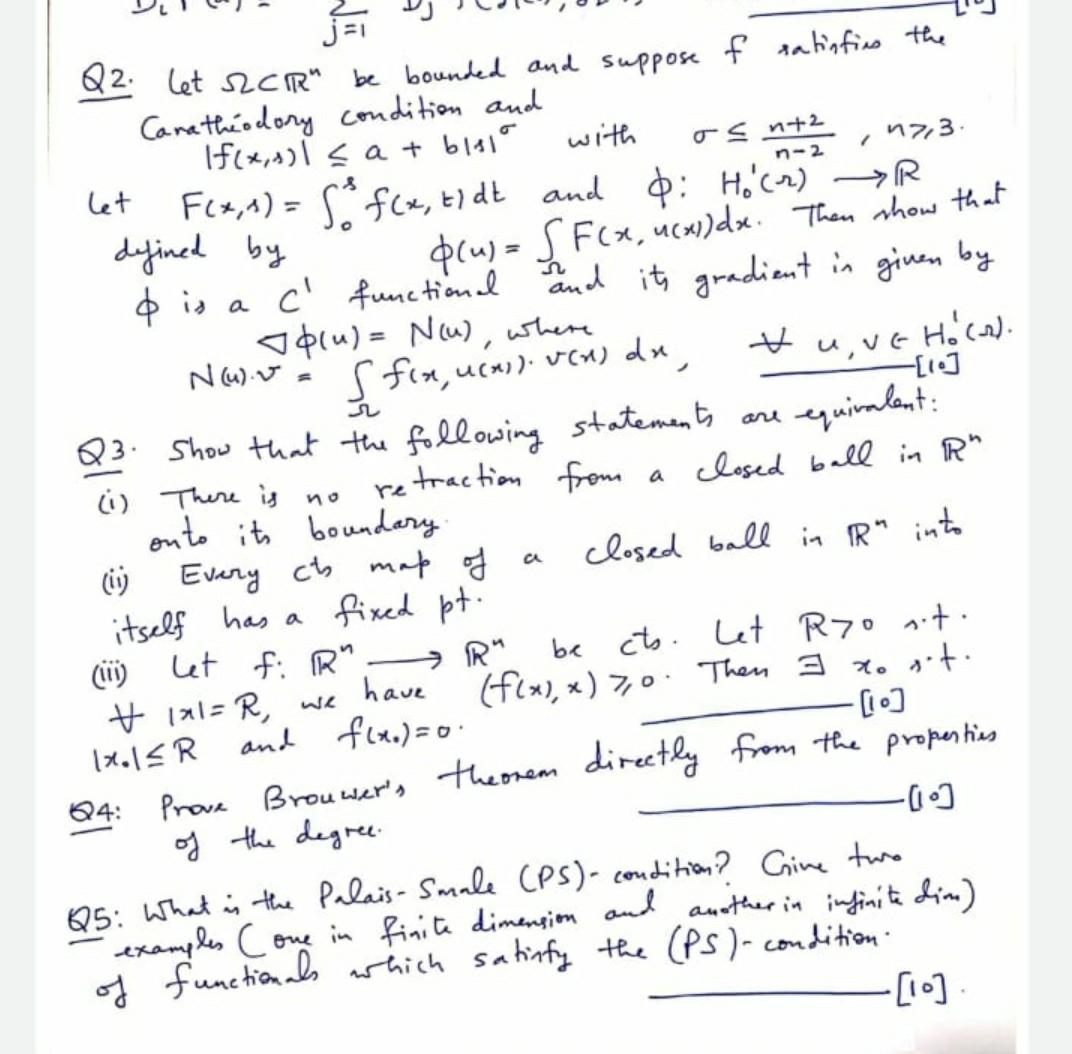 j=1
[10]
Q2. Let Ω⊂ℝⁿ be bounded and suppose f satisfies the
Carathéodory condition and
|f(x,s)| ≤ a + b|s|^σ with σ ≤ (n+2)/(n-2) , n≥3.
Let F(x,s) = ∫₀ˢ f(x,t)dt and φ: H₀¹(Ω) → ℝ
defined by φ(u) = ∫_Ω F(x,u(x))dx. Then show that
φ is a C¹ functional and its gradient is given by
∇φ(u) = N(u), where
N(u).v = ∫_Ω f(x,u(x)).v(x) dx, ∀ u,v ∈ H₀¹(Ω).
[10]
Q3. Show that the following statements are equivalent:
(i) There is no retraction from a closed ball in ℝⁿ
onto its boundary.
(ii) Every cts map of a closed ball in ℝⁿ into
itself has a fixed pt.
(iii) Let f: ℝⁿ → ℝⁿ be cts. Let R>0 s.t.
∀ |x|=R, we have (f(x),x) ≥0. Then ∃ x₀ s.t.
|x₀|≤R and f(x₀)=0.
[10]
Q4: Prove Brouwer's theorem directly from the properties
of the degree.
[10]
Q5: What is the Palais-Smale (PS)-condition? Give two
examples (one in finite dimension and another in infinite dim)
of functionals which satisfy the (PS)-condition.
[10].